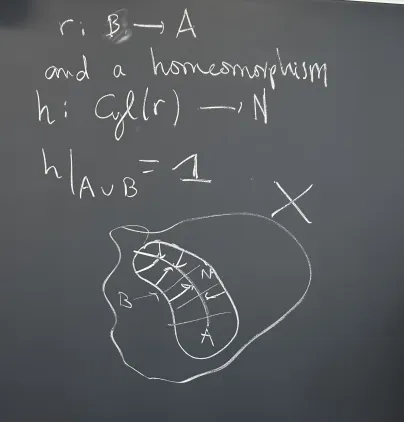 r: B → A
and a homeomorphism
h: Cyl(r) → N
h|A∪B = 1
X
N
B
A